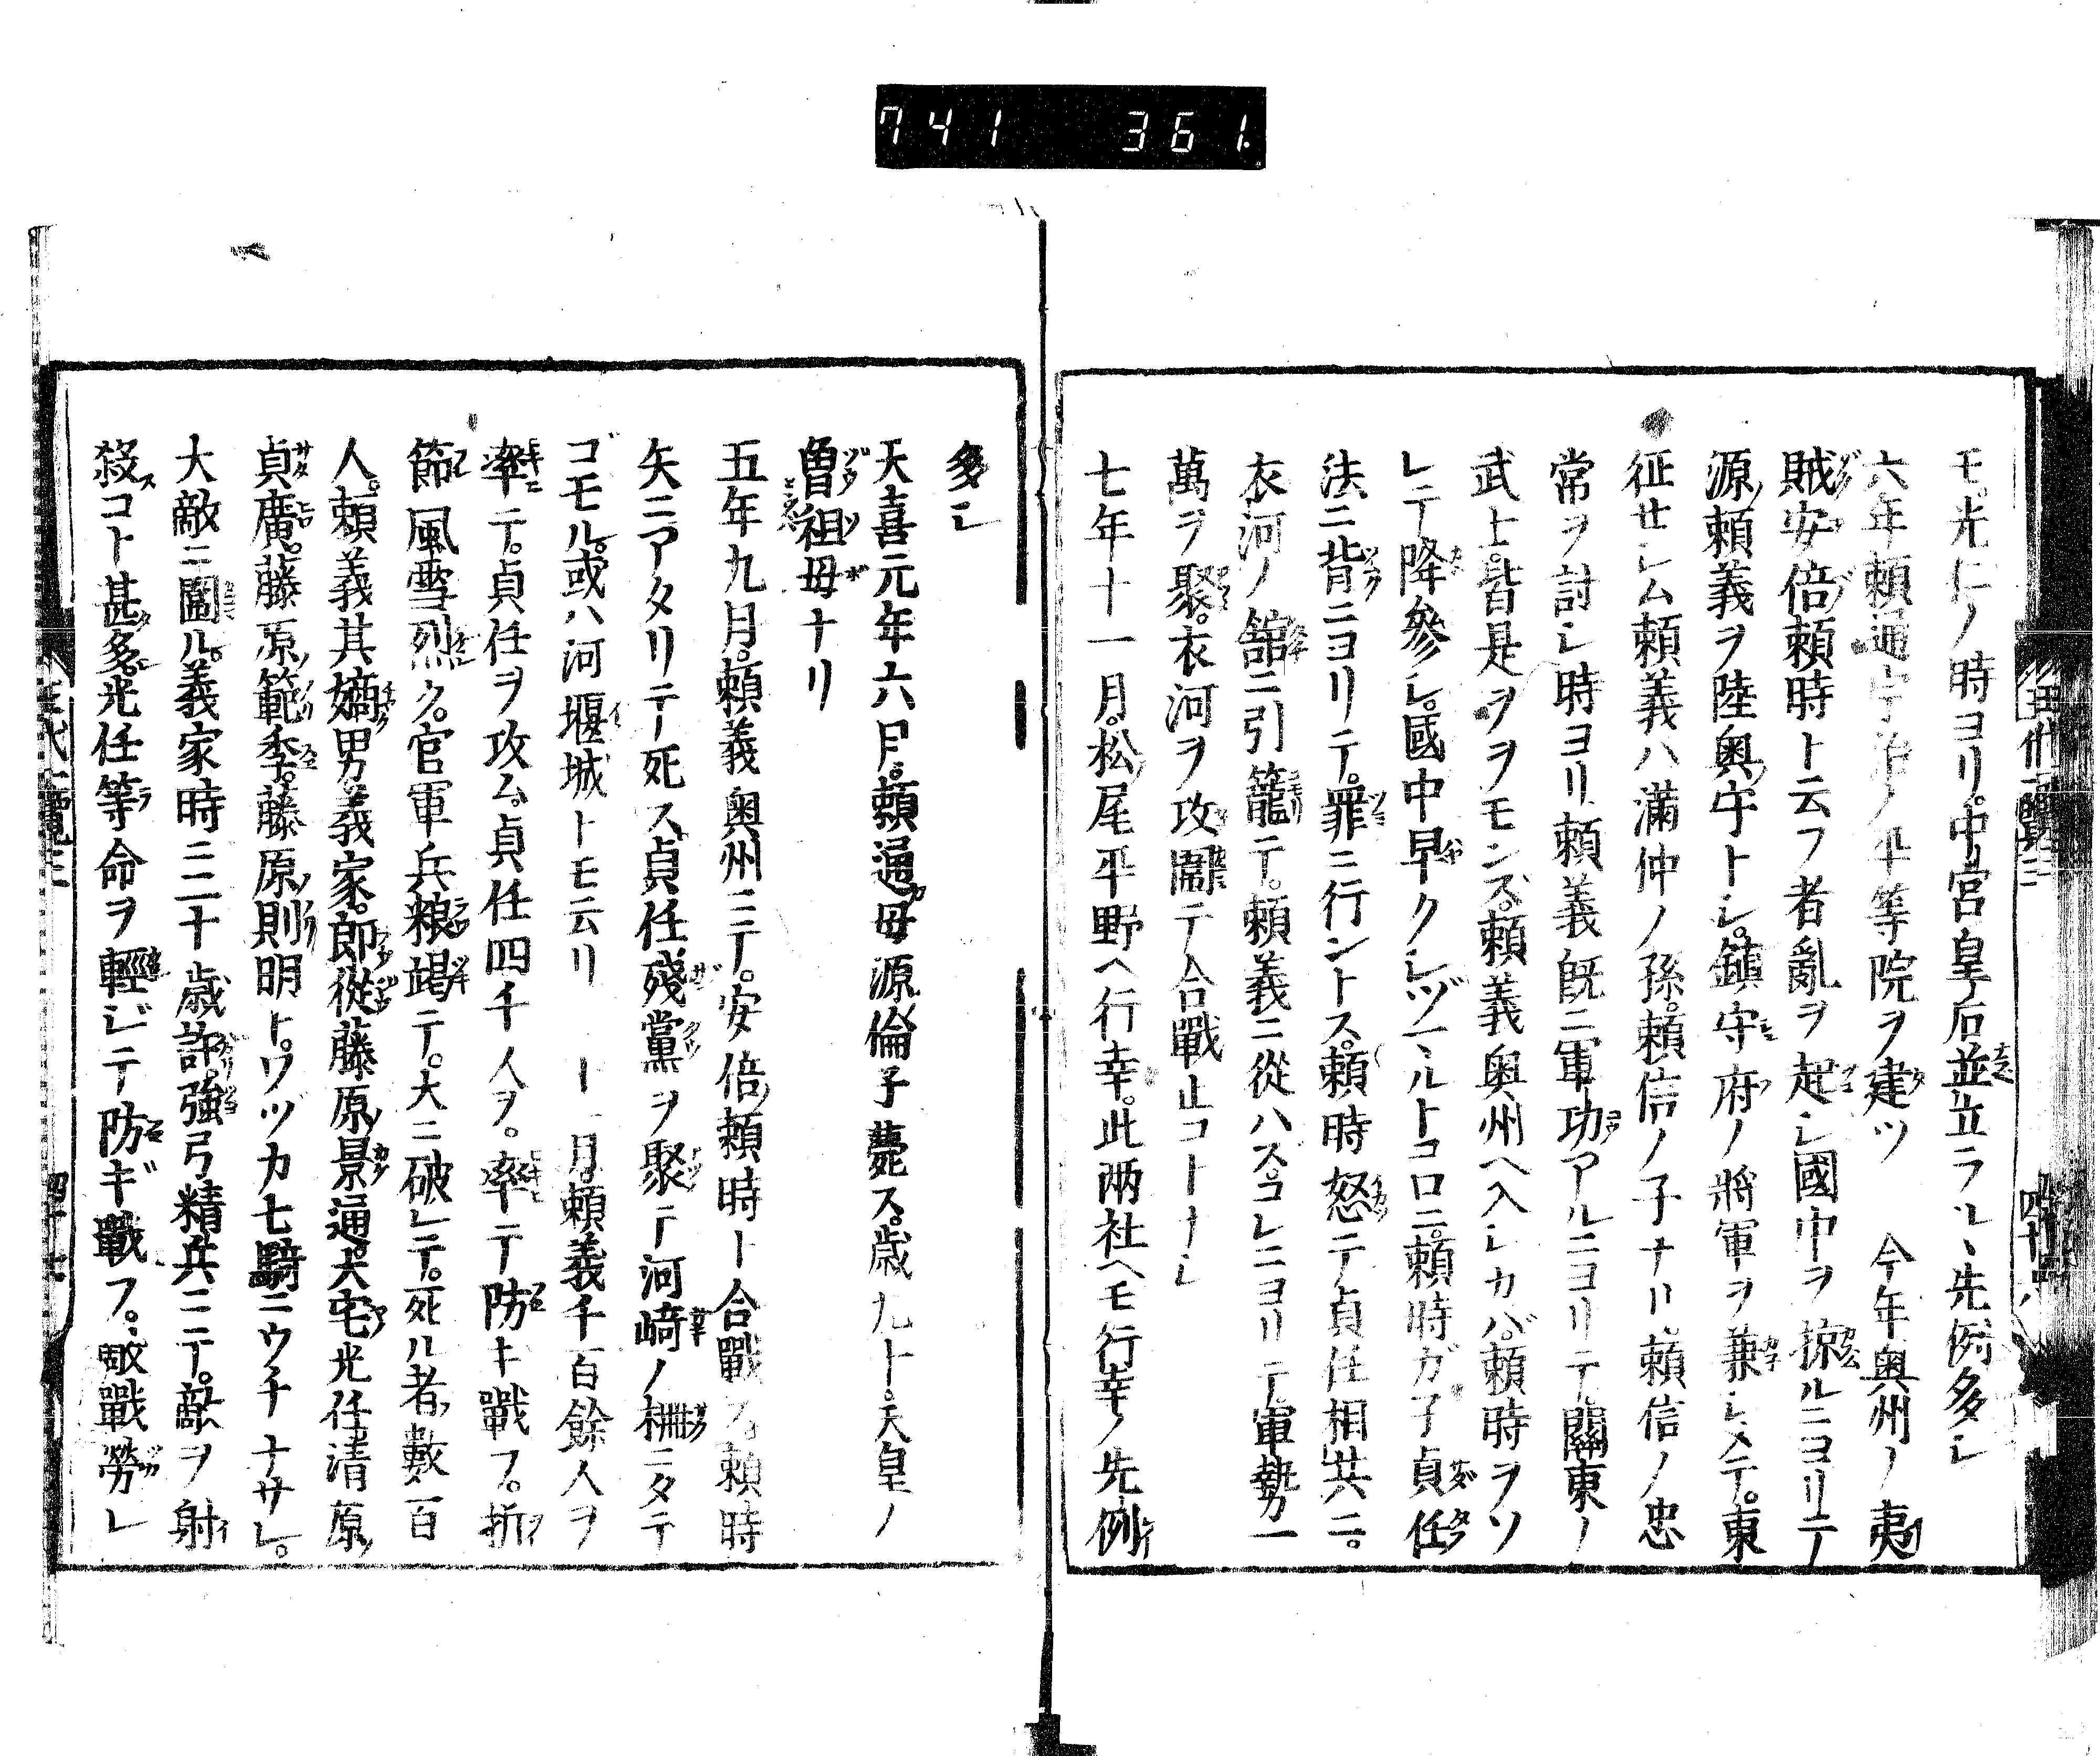 741 361.
モ。光仁ノ時ヨリ。中宮皇后並立ラルヽ先例多シ
六年頼通宇治ノ平等院ヲ建ツ 今年奥州ノ夷
賊安倍頼時ト云フ者亂ヲ起シ國中ヲ掠ルニヨリテ
源頼義ヲ陸奥守トシ。鎮守府ノ將軍ヲ兼シメテ。東
征セシム頼義ハ滿仲ノ孫。頼信ノ子ナリ。頼信ノ忠
常ヲ討シ時ヨリ頼義既ニ軍功アルニヨリテ關東ノ
武士。皆是ヲヲモンズ。頼義奥州ヘ入シカバ。頼時ヲソ
レテ降參シ。國中早クシヅマルトコロニ。頼時ガ子貞任
法ニ背ニヨリテ。罪ニ行ントス。頼時怒テ貞任相共ニ。
衣河ノ舘ニ引籠テ。頼義ニ從ハス。コレニヨリテ。軍勢一
萬ヲ聚。衣河ヲ攻鬪テ合戰止コトナシ
七年十一月。松尾平野ヘ行幸。此両社ヘモ行幸ノ先例
多シ
天喜元年六月。頼通母源倫子薨ス。歳九十。天皇ノ
曽祖母ナリ
五年九月。頼義奥州ニテ。安倍頼時ト合戰ス。頼時
矢ニアタリテ死ス。貞任殘黨ヲ聚テ河崎ノ柵ニタテ
ゴモル。或ハ河堰城トモ云リ 十一月。頼義千百餘人ヲ
率テ。貞任ヲ攻ム。貞任四千人ヲ。率テ防キ戰フ。折
節風雪烈ク。官軍兵粮竭テ。大ニ破レテ。死ル者數百
人。頼義其嫡男義家。郎從藤原景通。大宅光任清原
貞廣。藤原範季。藤原則明ト。ワヅカ七騎ニウチナサレ。
大敵ニ圍ル。義家時ニ二十歳許。強弓精兵ニテ。敵ヲ射
殺コト甚多。光任等命ヲ輕ジテ防ギ戰フ。敵戰勞レ